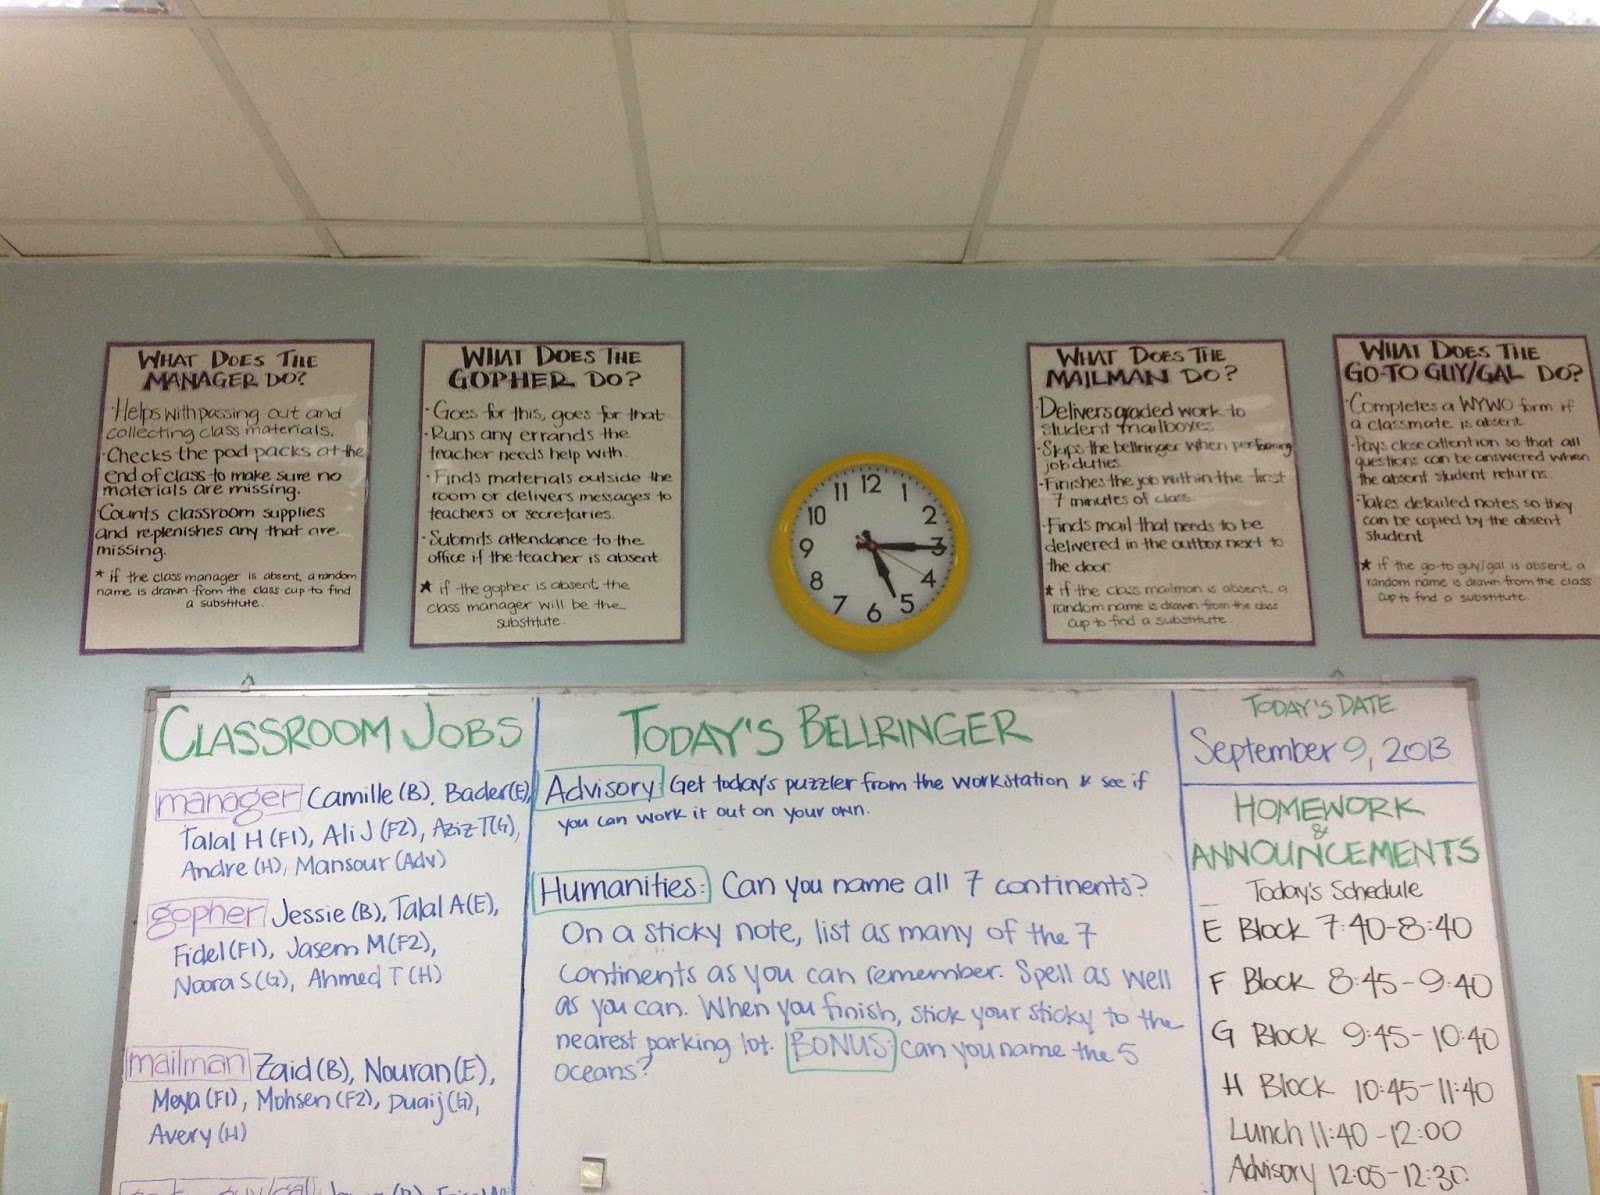 WHAT DOES THE
MANAGER DO?
·Helps with passing out and
collecting class materials.
·Checks the pod packs at the
end of class to make sure no
materials are missing.
·Counts classroom supplies
and replenishes any that are
missing.
* if the class manager is absent, a random
name is drawn from the class cup to find
a substitute.
WHAT DOES THE
GOPHER DO?
·Goes for this, goes for that.
·Runs any errands the
teacher needs help with.
·Finds materials outside the
room or delivers messages to
teachers or secretaries.
·Submits attendance to the
office if the teacher is absent.
★ if the gopher is absent, the
class manager will be the
substitute.
11 12 1
10 2
9 3
8 4
7 6 5
WHAT DOES THE
MAILMAN DO?
·Delivers graded work to
student mailboxes.
·Skips the bellringer when performing
job duties.
·Finishes the job within the first
7 minutes of class.
·Finds mail that needs to be
delivered in the outbox next to
the door.
★ if the class mailman is absent, a
random name is drawn from the class
cup to find a substitute.
WHAT DOES THE
GO-TO GUY/GAL DO?
·Completes a WYWO form if
a classmate is absent.
·Pays close attention so that all
questions can be answered when
the absent student returns.
·Takes detailed notes so they
can be copied by the absent
student.
★ if the go-to guy/gal is absent, a
random name is drawn from the class
cup to find a substitute.
CLASSROOM JOBS
manager Camille (B), Bader (E),
Talal H (F1), Ali J (F2), Aziz T (G),
Andre (H), Mansour (Adv)
gopher Jessie (B), Talal A (E),
Fidel (F1), Jasem M (F2),
Noora S (G), Ahmed T (H)
mailman Zaid (B), Nouran (E),
Meya (F1), Mohsen (F2), Duaij (G),
Avery (H)
TODAY'S BELLRINGER
Advisory: Get today's puzzler from the workstation & see if
you can work it out on your own.
Humanities: Can you name all 7 continents?
On a sticky note, list as many of the 7
continents as you can remember. Spell as well
as you can. When you finish, stick your sticky to the
nearest parking lot. BONUS: can you name the 5
oceans?
TODAY'S DATE
September 9, 2013
HOMEWORK
&
ANNOUNCEMENTS
Today's Schedule
E Block 7:40-8:40
F Block 8:45-9:40
G Block 9:45-10:40
H Block 10:45-11:40
Lunch 11:40-12:00
Advisory 12:05-12:30